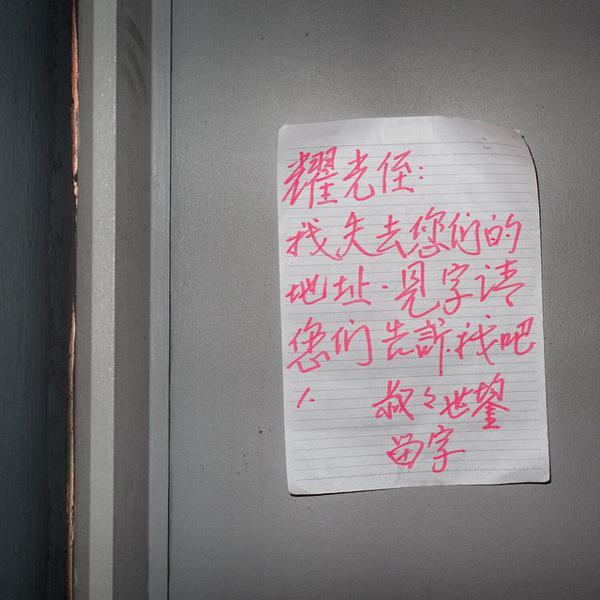 耀光侄:
我失去您们的
地址.見字请
您们告訴我吧
!. 叔々世鋆
留字